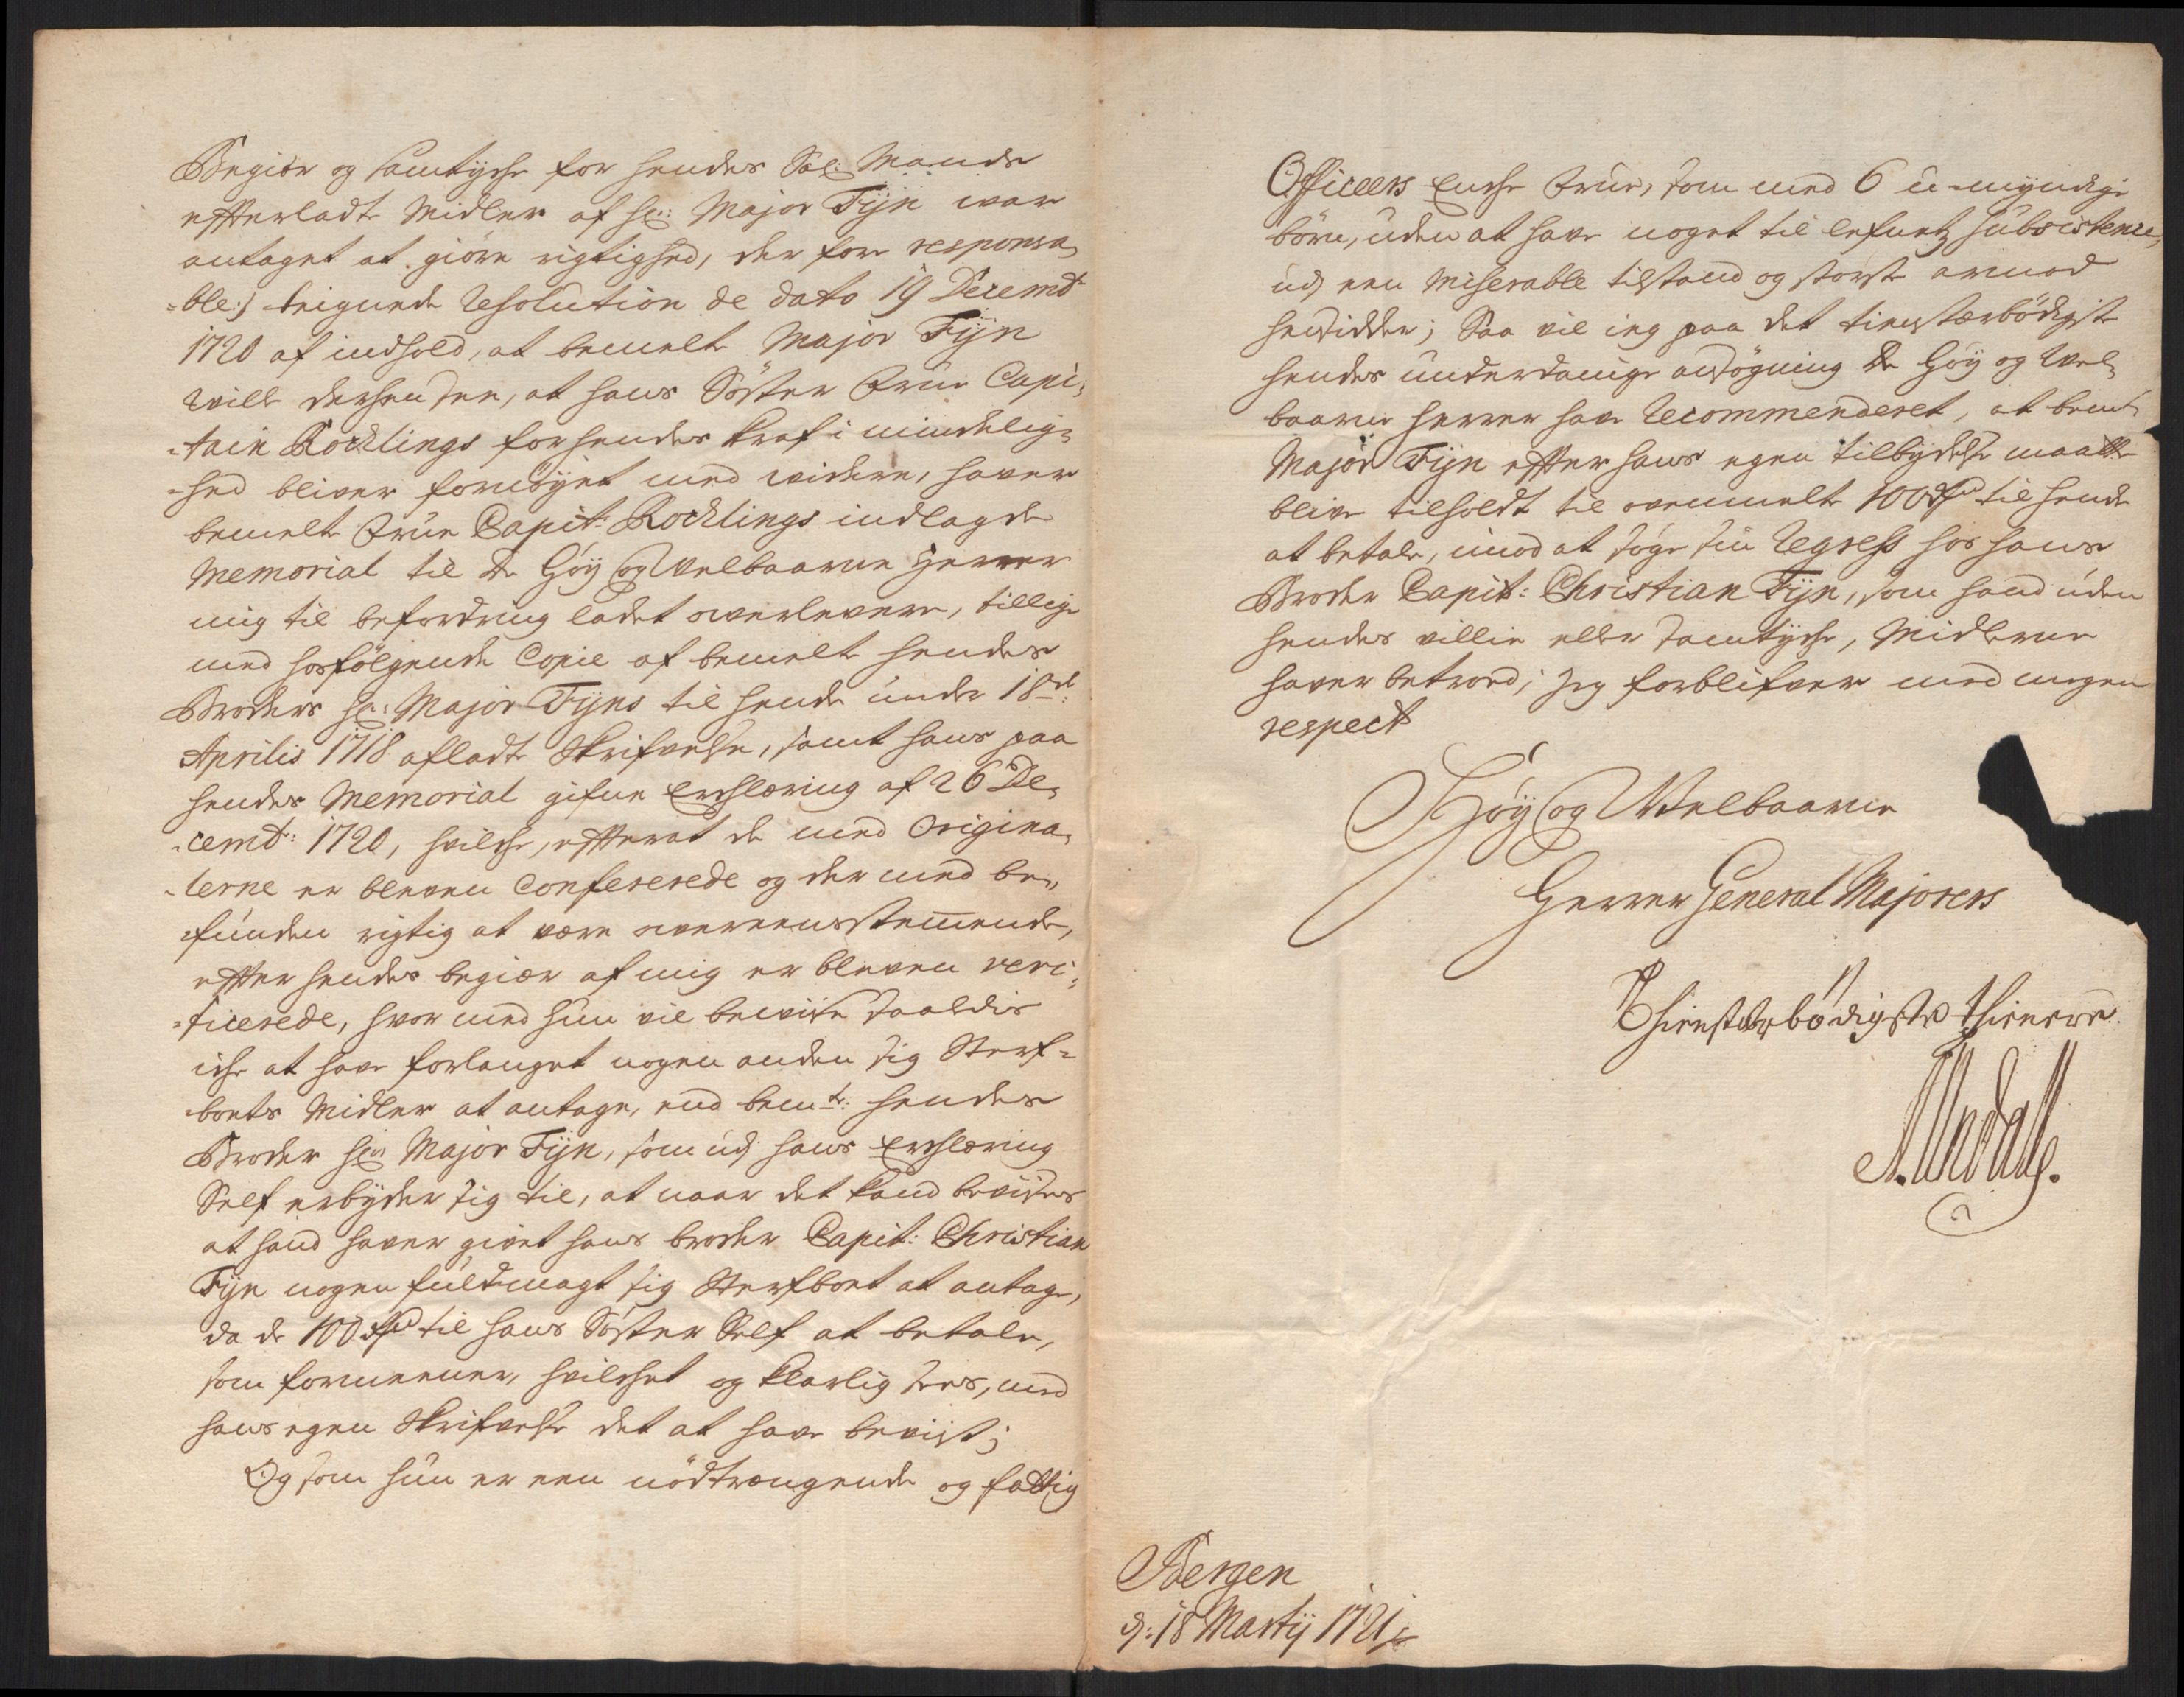 Begiær og samtyche for hendes Sal: Mands
effterladte Midler af hr: Major Tijn war
antaget at giöre rigtighed, der for responsa,
=ble:/ teignede Resolution de dato 19 Decembr
1720 af indhold, at bemelte Major Tijn
wille dersen see, at hans Söster Frue Capi,
=tain Rocklings for hendes kraf i mindelig=
=hed bliver fornöyet med widere, haver
bemelte Frue Capit: Rocklings indlagde
Memorial til de Höy og Welbaarne Herrer
mig til befordring ladet overlevere, tillige
med hosfölgende Copie af bemelte hendes
Broders hr: Major Tijns til hende under 18de
Aprilis 1718 afladte Skrifvelse, samt hans paa
hendes Memorial gifne Erchlæring af 26 De,
=cembr: 1720, hvilche, efferat de med Origina,
=lerne er bleven Confererede og der med be,
=funden rigtig at være overeensstemende,
effter hendes begiær af mig er bleven veri,
=ficerede, hvor med hun vil bevise saaledis
iche at have forlanget nogen anden sig Sterf=
boets Midler at antage, end bemte: hendes
Broder hr Major Tijn, som udj hans Erchlæring
Self erbyder sig til, at naar det kand bevises
at hand haver givet hans broder Capit: Christian
Tijn nogen fuldmagt sig Sterfboet at antage,
da de 100 rd til hans Söster Self at betale,
som formeener, hvilchet og klarlig sees, med
hans egen Skrifvelse det at have bevist;
Og som hun er een nödtrængende og fattig
Officeers Enche Frue, som med 6 u-myndige
börn, uden at have noget til lefnetz subsistence,
udj een Miserable tilstand og störste armod
hensidder; Saa vil ieg paa det tienstærbödigste
hendes underdanige ansögning De Höy og Wel,
baarne Herrer have Recommenderet, at bemte
Major Tijn effter hans egen tilbydelse maatte
blive tilholdt til ovenmelte 100 rd til hende
at betale, imod at söge sin Regress hos hans
Broder Capit: Christian Tijn, som hand uden
hendes villie eller samtyche, Midlerne
haver betroed; Jeg forblifver med megen
respect
Höy og Welbaarne
Herrer General Majorers
Thienstærbödigste thienere
A. Undall.
Bergen
d: 18 Martij 1721